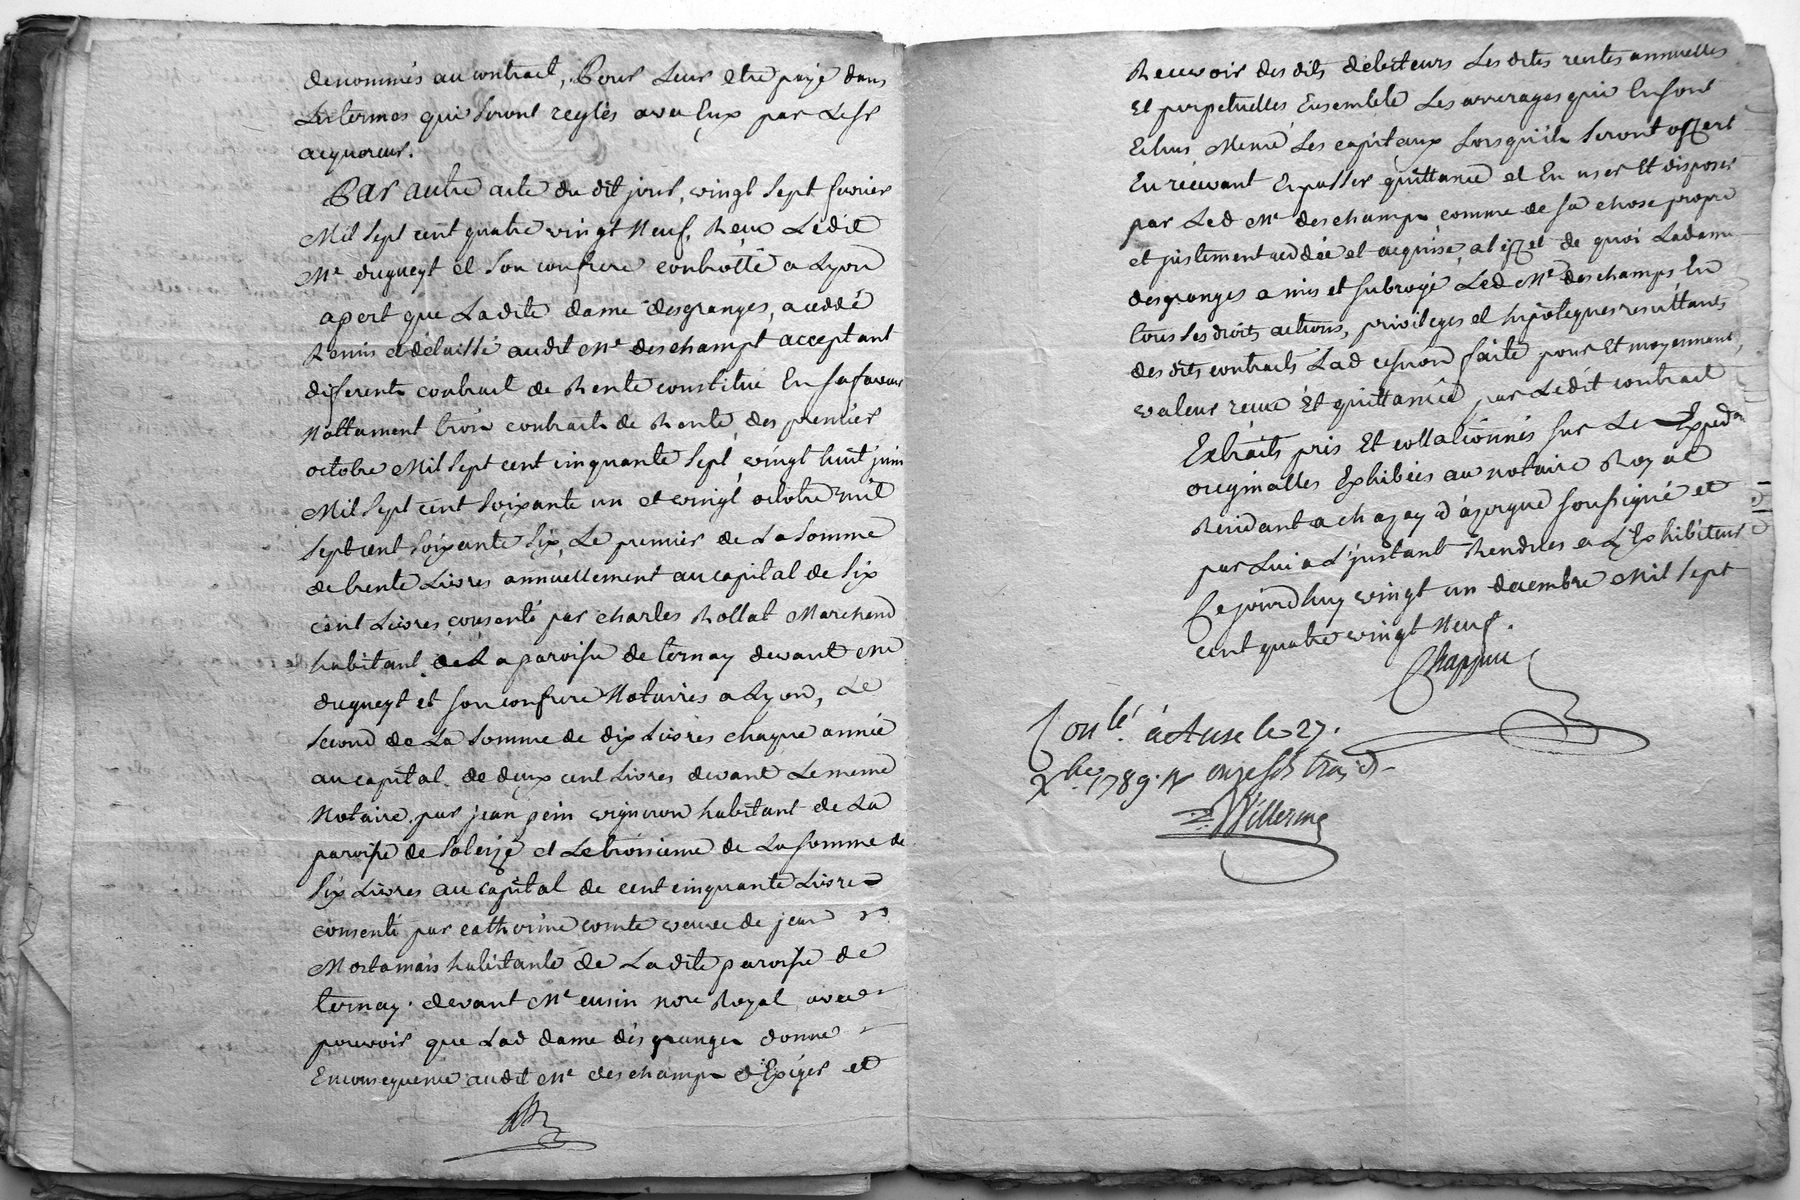 denommés au contract, Pour Leur etre payé dans
Les termes qui seront reglés avec Eux par Led sr
acquereur.
Par autre acte du dit jour, vingt sept fevrier
Mil sept cent quatre vingt Neuf, Reçu Ledit
Me dugueyt et son confrere controllé a Lyon
apert que La dite dame desgranges, a cedé
Remis et délaissé audit Me deschampt acceptant
differents contract de Rente constitué En sa faveur
Nottament trois contracts de Rente, des premier
octobre Mil sept cent cinquante sept, vingt huit juin
Mil sept cent soixante un et vingt octobre mil
sept cent soixante six, Le premier de La somme
de trente Livres annuellement au capital de six
cent Livres, consenti par charles Rollat Marchand
habitant de La paroisse de ternay devant Me
dugueyt et son confrere Notaires a Lyon, Le
second de La somme de dix Livres chaque année
au capital de deux cent Livres devant Le meme
Notaire, par jean pein vigneron habitant de La
paroisse de soleize et Le troisieme de La somme de
six Livres au capital de cent cinquante Livres
consenti par catherine comte veuve de jean
Mortamais habitante de La dite paroisse de
ternay. devant Me cusin nore Royal, avec
pouvoir que Lad dame désgranges donne
En consequence audit Me deschamps d'Exiger et
Recevoir des dits debiteurs Les dites rentes annuelles
et perpetuelles Ensemble Les arrerages qui En sont
Echus, Meme Les capitaux Lorsqu'ils seront offert
En recevant En passer quittance et En user Et disposer
par Led Me deschamps comme de sa chose propre
et justement cedée et acquise, at effet de quoi La dame
desgranges a mis et subrogé Led Me deschamps En
tous Les droits actions, privileges et hipoteques resultants
des dits contracts Lad cession faite pour Et moyennant,
valeur recue Et quittancée par Ledit contract
Extraits pris Et collationnés sur Les Expedons
originalles Exhibées au notaire Royal
Residant a chazay d'azergue soussigné et
par Lui a L'jnstant Rendues a L'Exhibiteur
Ce jourdhuy vingt un decembre Mil sept
cent quatre vingt Neuf.
Chappuu
Conlé. à Anse le 27.
Xbre 1789. R onze sols trois d.
Willerme